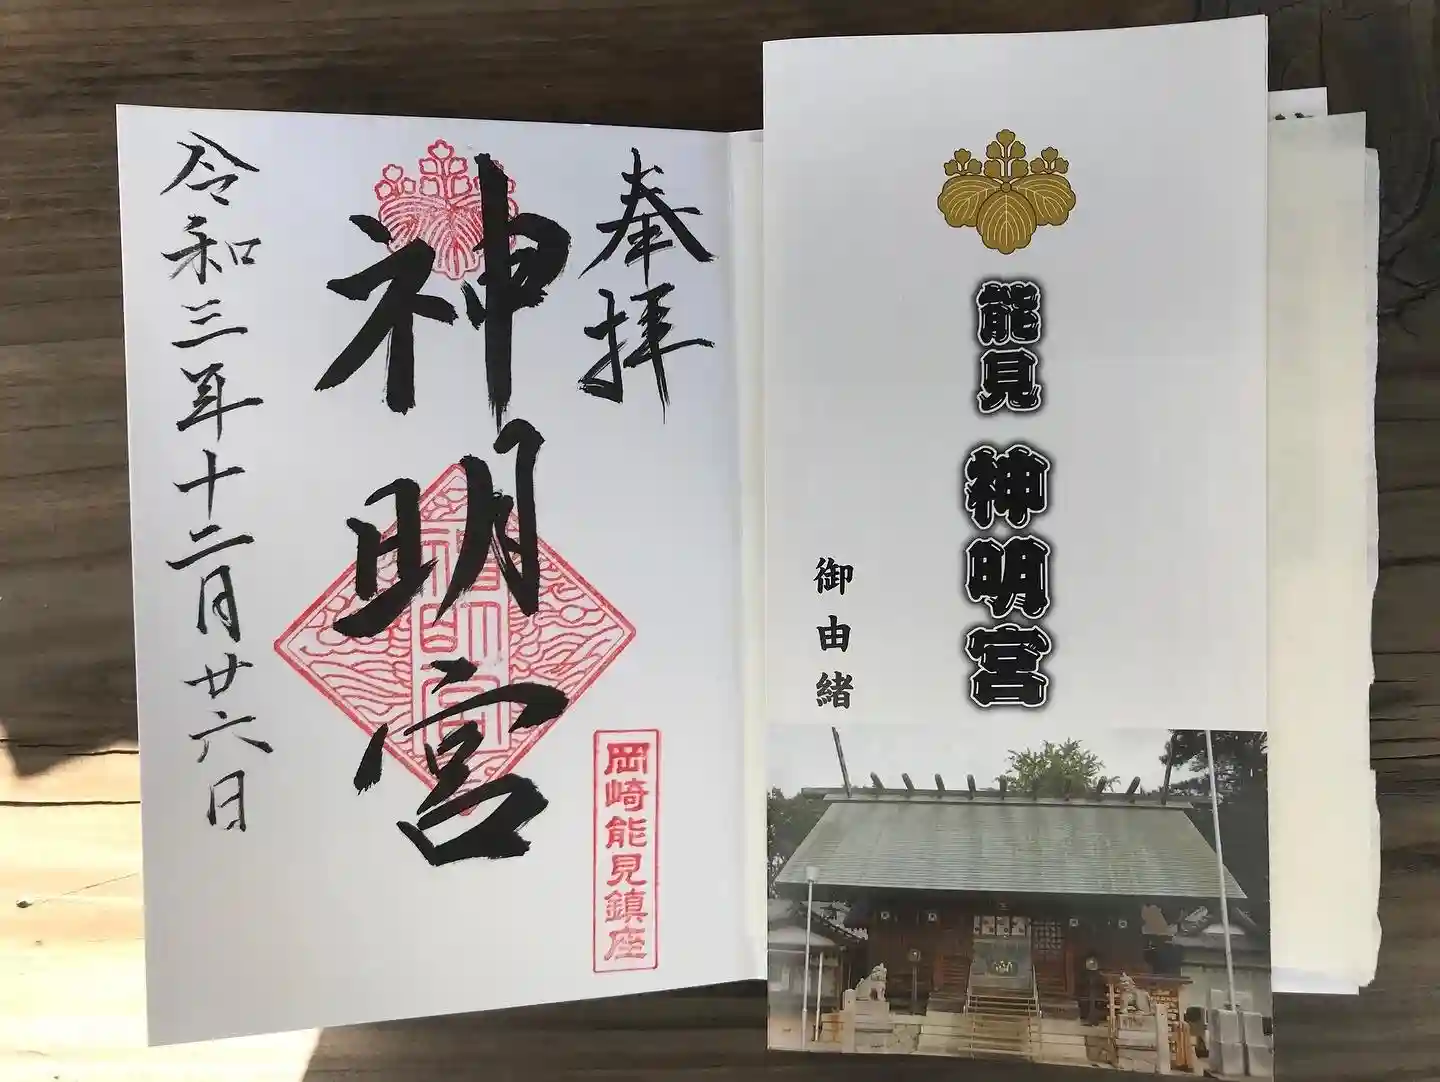 奉拝
神明宮
神明宮
岡崎能見鎮座
令和三年十二月廿六日
能見 神明宮
御由緒